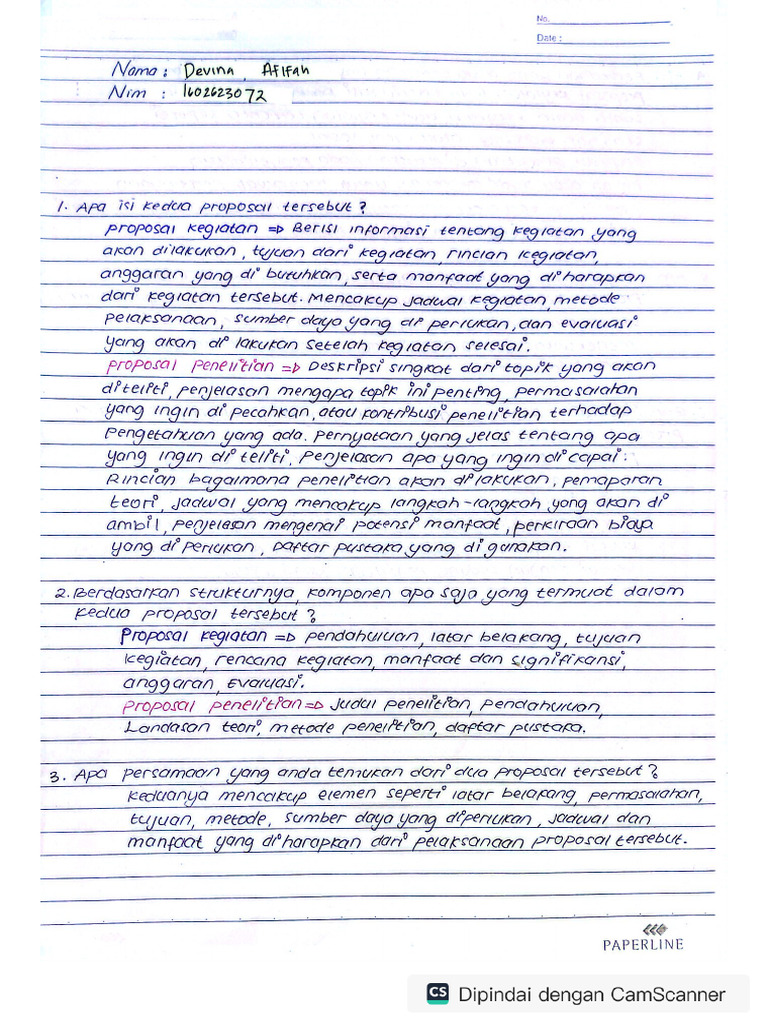 No.
Date :
Nama : Devina Afifah
Nim : 1602623072
1. Apa isi kedua proposal tersebut?
proposal kegiatan => Berisi informasi tentang kegiatan yang
akan dilakukan, tujuan dari kegiatan, rincian kegiatan,
anggaran yang di butuhkan, serta manfaat yang di harapkan
dari kegiatan tersebut. Mencakup jadwal kegiatan, metode
pelaksanaan, sumber daya yang di perlukan, dan evaluasi
yang akan di lakukan setelah kegiatan selesai.
proposal penelitian => Deskripsi singkat dari topik yang akan
di teliti, penjelasan mengapa topik ini penting, permasalahan
yang ingin di pecahkan, atau kontribusi penelitian terhadap
pengetahuan yang ada. Pernyataan yang jelas tentang apa
yang ingin di teliti, Penjelasan apa yang ingin di capai.
Rincian bagaimana penelitian akan di lakukan, pemaparan
teori, jadwal yang mencakup langkah-langkah yang akan di
ambil, penjelasan mengenai potensi manfaat, perkiraan biaya
yang di perlukan, Daftar pustaka yang di gunakan.
2. Berdasarkan strukturnya, komponen apa saja yang termuat dalam
kedua proposal tersebut?
Proposal kegiatan => pendahuluan, latar belakang, tujuan
kegiatan, rencana kegiatan, manfaat dan signifikansi,
anggaran, Evaluasi.
Proposal penelitian => Judul penelitian, pendahuluan,
Landasan teori, metode penelitian, daftar pustaka.
3. Apa persamaan yang anda temukan dari dua proposal tersebut?
Keduanya mencakup elemen seperti latar belakang, permasalahan,
tujuan, metode, sumber daya yang diperlukan, jadwal dan
manfaat yang di harapkan dari pelaksanaan proposal tersebut.
PAPERLINE
CS Dipindai dengan CamScanner